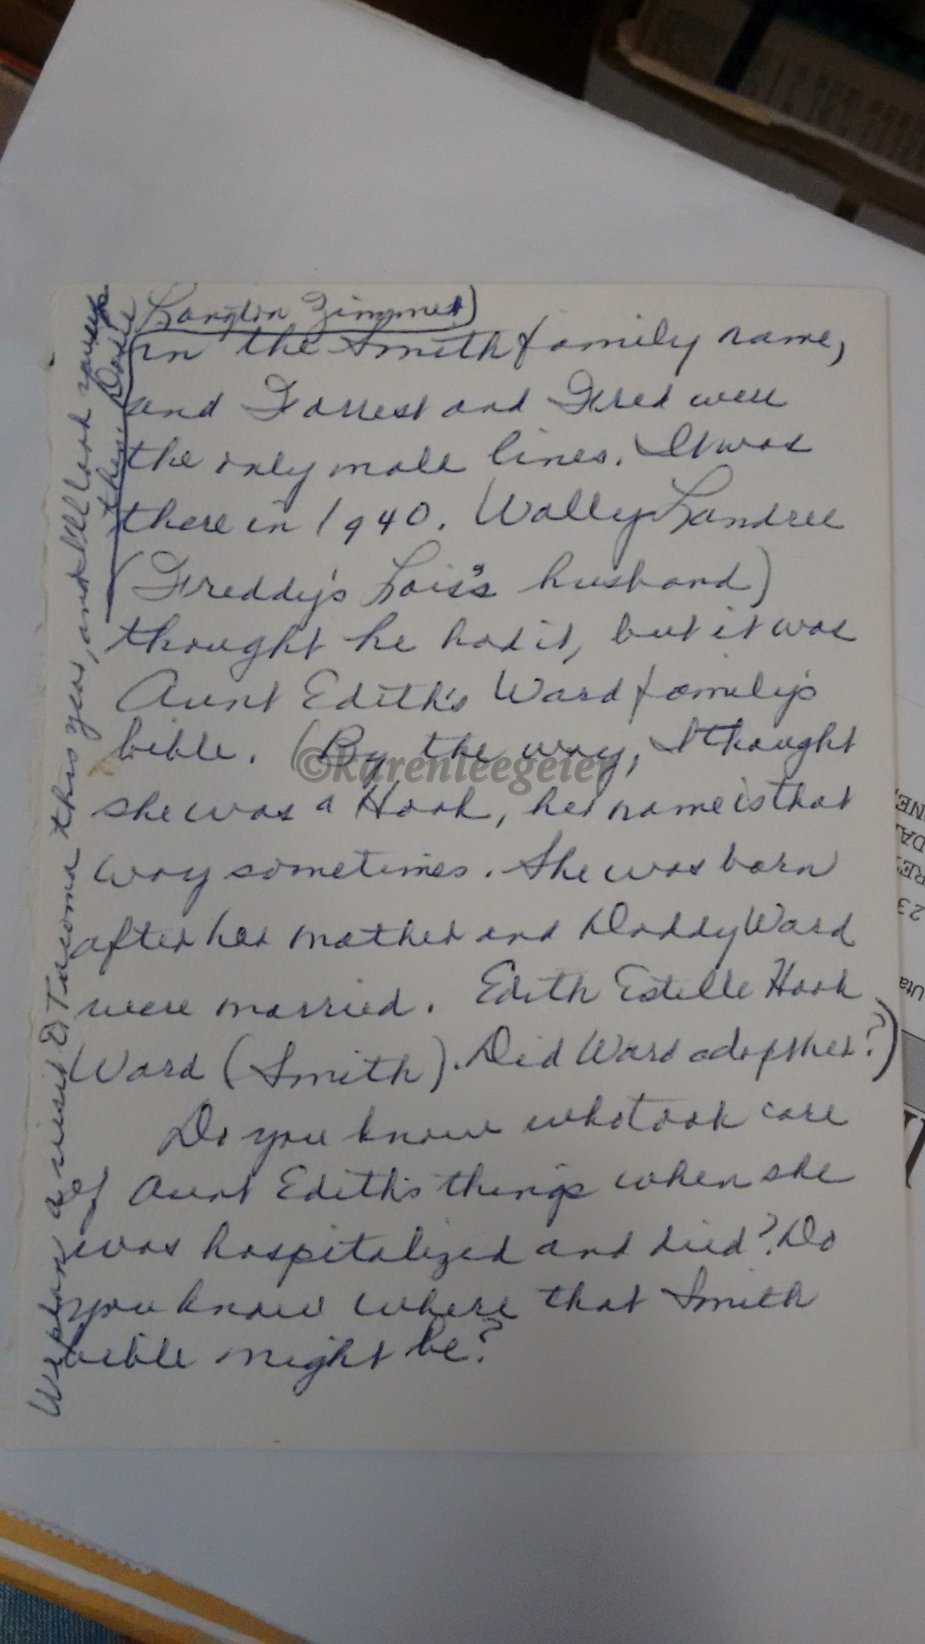 Langdon Zimmer)
in the Smith family name,
and Forrest and Fred were
the only male lines. It was
there in 1940. Wally Landree
(Freddy's Lois's husband)
thought he had it, but it was
Aunt Edith's Ward family's
bible. (By the way, I thought
she was a Hook, her name is that
way sometimes. She was born
after her mother and Daddy Ward
were married. Edith Estelle Hook
Ward (Smith). Did Ward adopt her?)
Do you know who took care
of Aunt Edith's things when she
was hospitalized and died? Do
you know where that Smith
bible might be?
We plan a visit to Tacoma this year, and I'll look you up
then. Doris
©karenleegeier
NE,
DA
RE
23
Uta